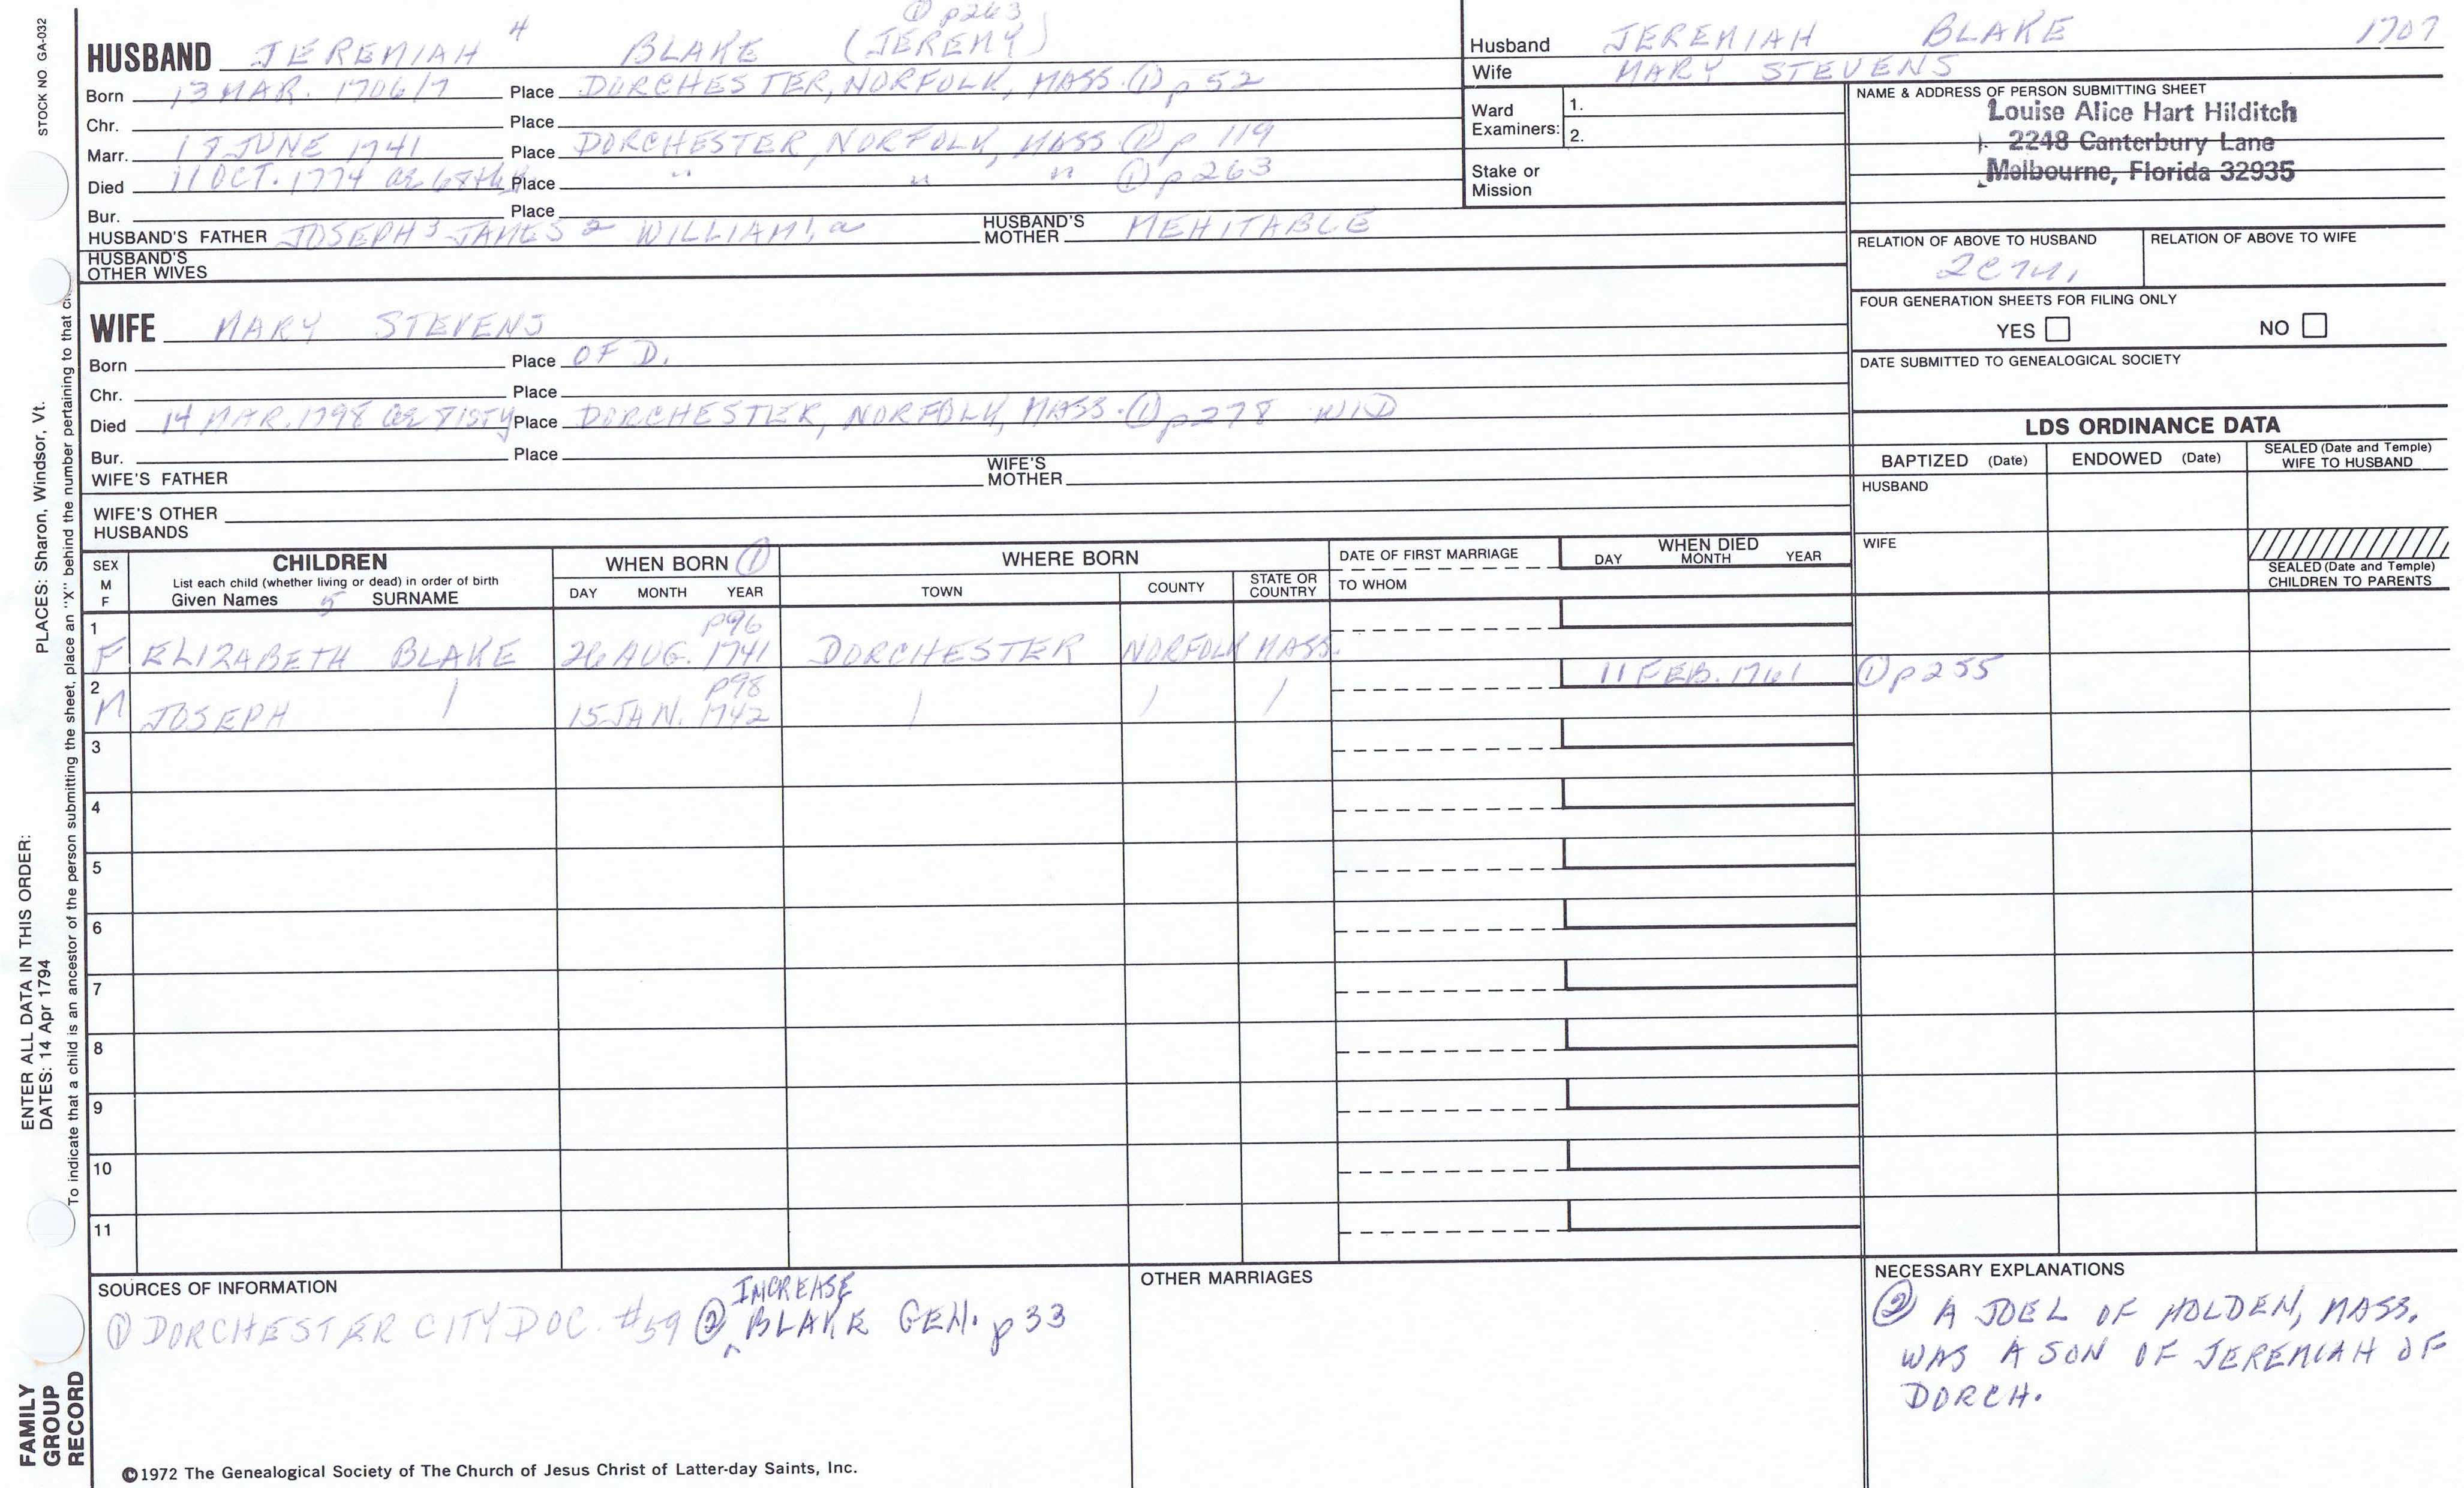 STOCK NO. GA-032
① p263
HUSBAND JEREMIAH 4 BLAKE (JEREMY)
Born 13 MAR. 1706/7 Place DORCHESTER, NORFOLK, MASS. ① p 52
Chr. Place
Marr. JUNE 1741 Place DORCHESTER, NORFOLK, MASS. ① p 119
Died 11 OCT. 1774 ae 68th Place " " " ① p263
Bur. Place
HUSBAND'S FATHER JOSEPH 3 JAMES 2 WILLIAM 1, a HUSBAND'S MOTHER MEHITABLE
HUSBAND'S OTHER WIVES
WIFE MARY STEVENS
Born Place OF D.
Chr. Place
Died 14 MAR. 1798 ae 71sty Place DORCHESTER, NORFOLK, MASS. ① p278 WID
Bur. Place
WIFE'S FATHER WIFE'S MOTHER
WIFE'S OTHER HUSBANDS
Husband JEREMIAH BLAKE 1707
Wife MARY STEVENS
Ward Examiners: 1.
2.
Stake or Mission
NAME & ADDRESS OF PERSON SUBMITTING SHEET
Louise Alice Hart Hilditch
2248 Canterbury Lane
Melbourne, Florida 32935
RELATION OF ABOVE TO HUSBAND RELATION OF ABOVE TO WIFE
FOUR GENERATION SHEETS FOR FILING ONLY
YES NO
DATE SUBMITTED TO GENEALOGICAL SOCIETY
LDS ORDINANCE DATA
BAPTIZED (Date) ENDOWED (Date) SEALED (Date and Temple) WIFE TO HUSBAND
HUSBAND
WIFE
SEALED (Date and Temple) CHILDREN TO PARENTS
SEX M F
CHILDREN
List each child (whether living or dead) in order of birth
Given Names 5 SURNAME
WHEN BORN ①
DAY MONTH YEAR
WHERE BORN
TOWN COUNTY STATE OR COUNTRY
DATE OF FIRST MARRIAGE
TO WHOM
WHEN DIED
DAY MONTH YEAR
1 p96
F ELIZABETH BLAKE 26 AUG. 1741 DORCHESTER NORFOLK MASS.
2 p98 11 FEB. 1761 ① p255
M JOSEPH 15 JAN. 1742
3
4
5
6
7
8
9
10
11
SOURCES OF INFORMATION
INCREASE
① DORCHESTER CITY DOC. #59 ② BLAKE GEN. p33
OTHER MARRIAGES
NECESSARY EXPLANATIONS
② A JOEL OF HOLDEN, MASS.
WAS A SON OF JEREMIAH OF
DORCH.
©1972 The Genealogical Society of The Church of Jesus Christ of Latter-day Saints, Inc.
FAMILY GROUP RECORD
ENTER ALL DATA IN THIS ORDER:
DATES: 14 Apr 1794
PLACES: Sharon, Windsor, Vt.
To indicate that a child is an ancestor of the person submitting the sheet, place an "X" behind the number pertaining to that